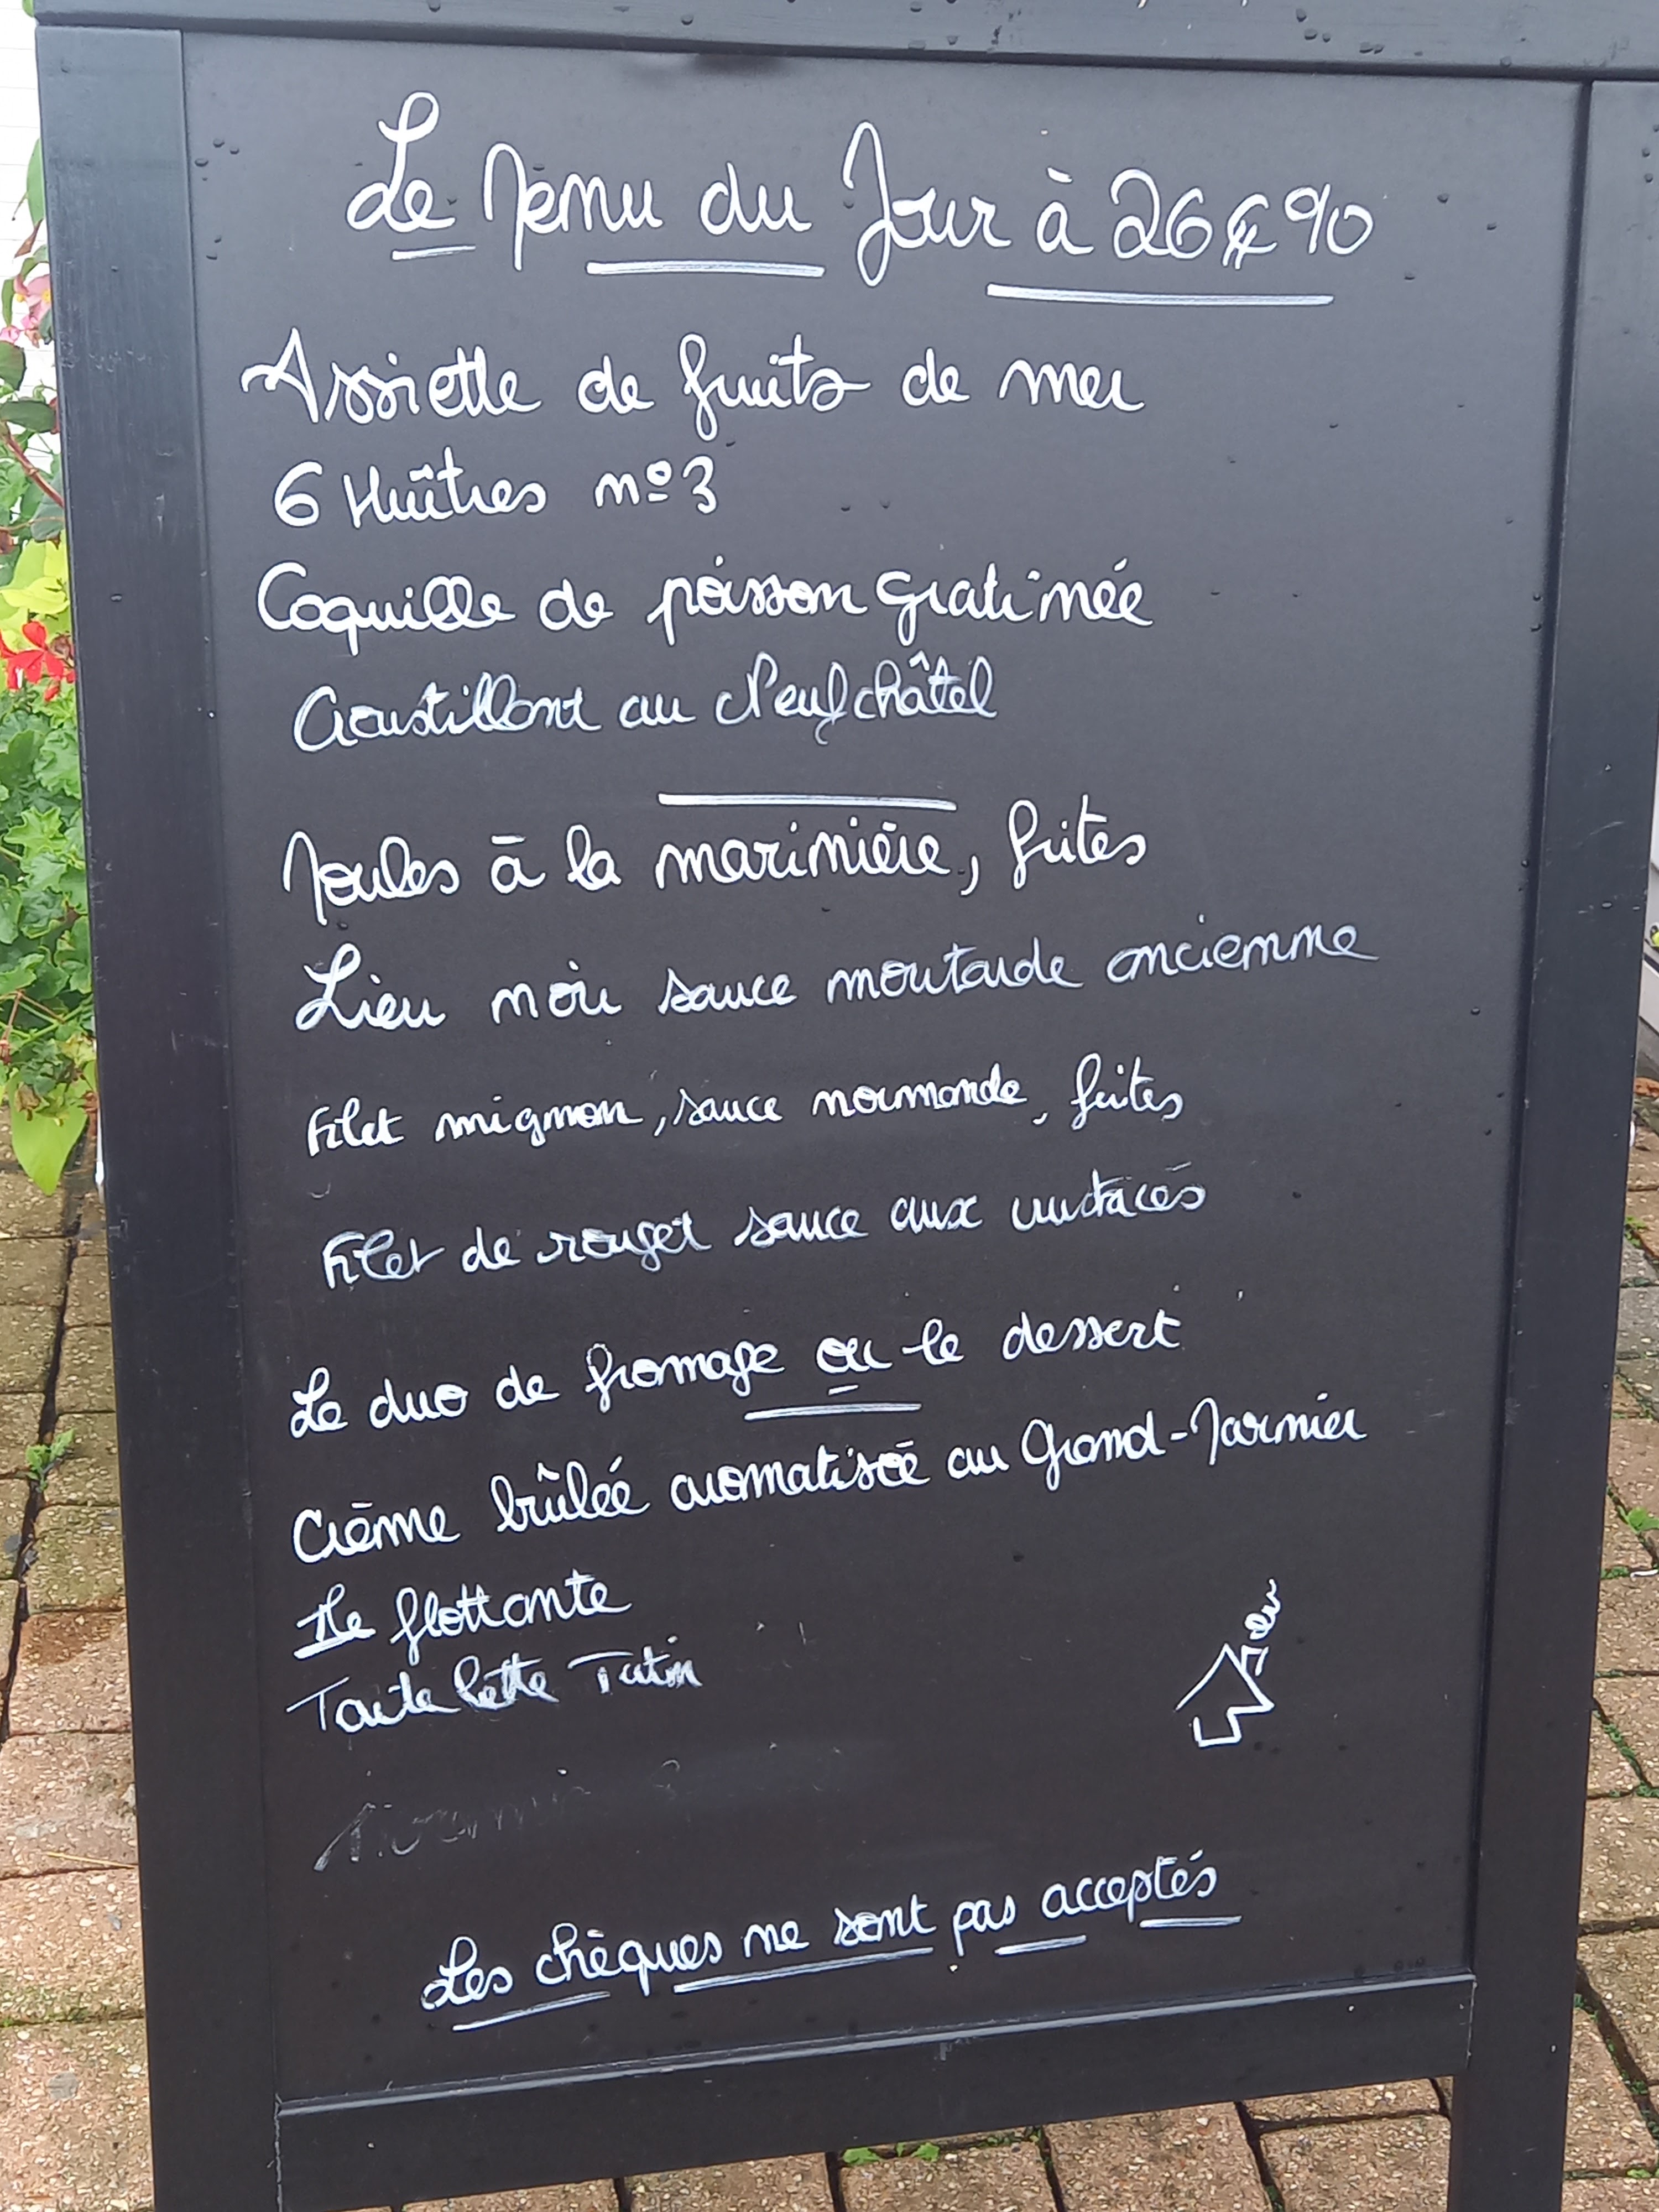 Le Menu du Jour à 26€90
Assiette de fruits de mer
6 Huîtres nº3
Coquille de poisson gratinée
Croustillant au Neufchâtel
Moules à la marinière, frites
Lieu noir sauce moutarde ancienne
Filet mignon, sauce normande, frites
Filet de rouget sauce aux crustacés
Le duo de fromage ou le dessert
Crème brûlée aromatisée au Grand-Marnier
Ile flottante
Tartelette Tatin
Les chèques ne sont pas acceptés